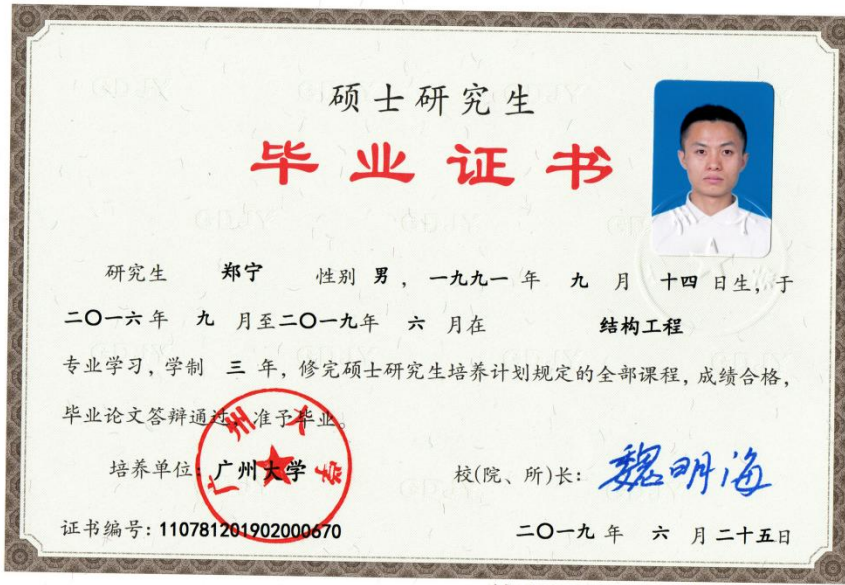 硕士研究生
毕业证书
研究生 郑宁 性别 男 ，一九九一 年 九 月 十四 日生，于
二〇一六年 九 月至二〇一九年 六 月在 结构工程
专业学习，学制 三 年，修完硕士研究生培养计划规定的全部课程，成绩合格，
毕业论文答辩通过，准予毕业。
培养单位：广州大学 校(院、所)长：魏明海
广州大学
证书编号：110781201902000670 二〇一九 年 六 月 二十五日